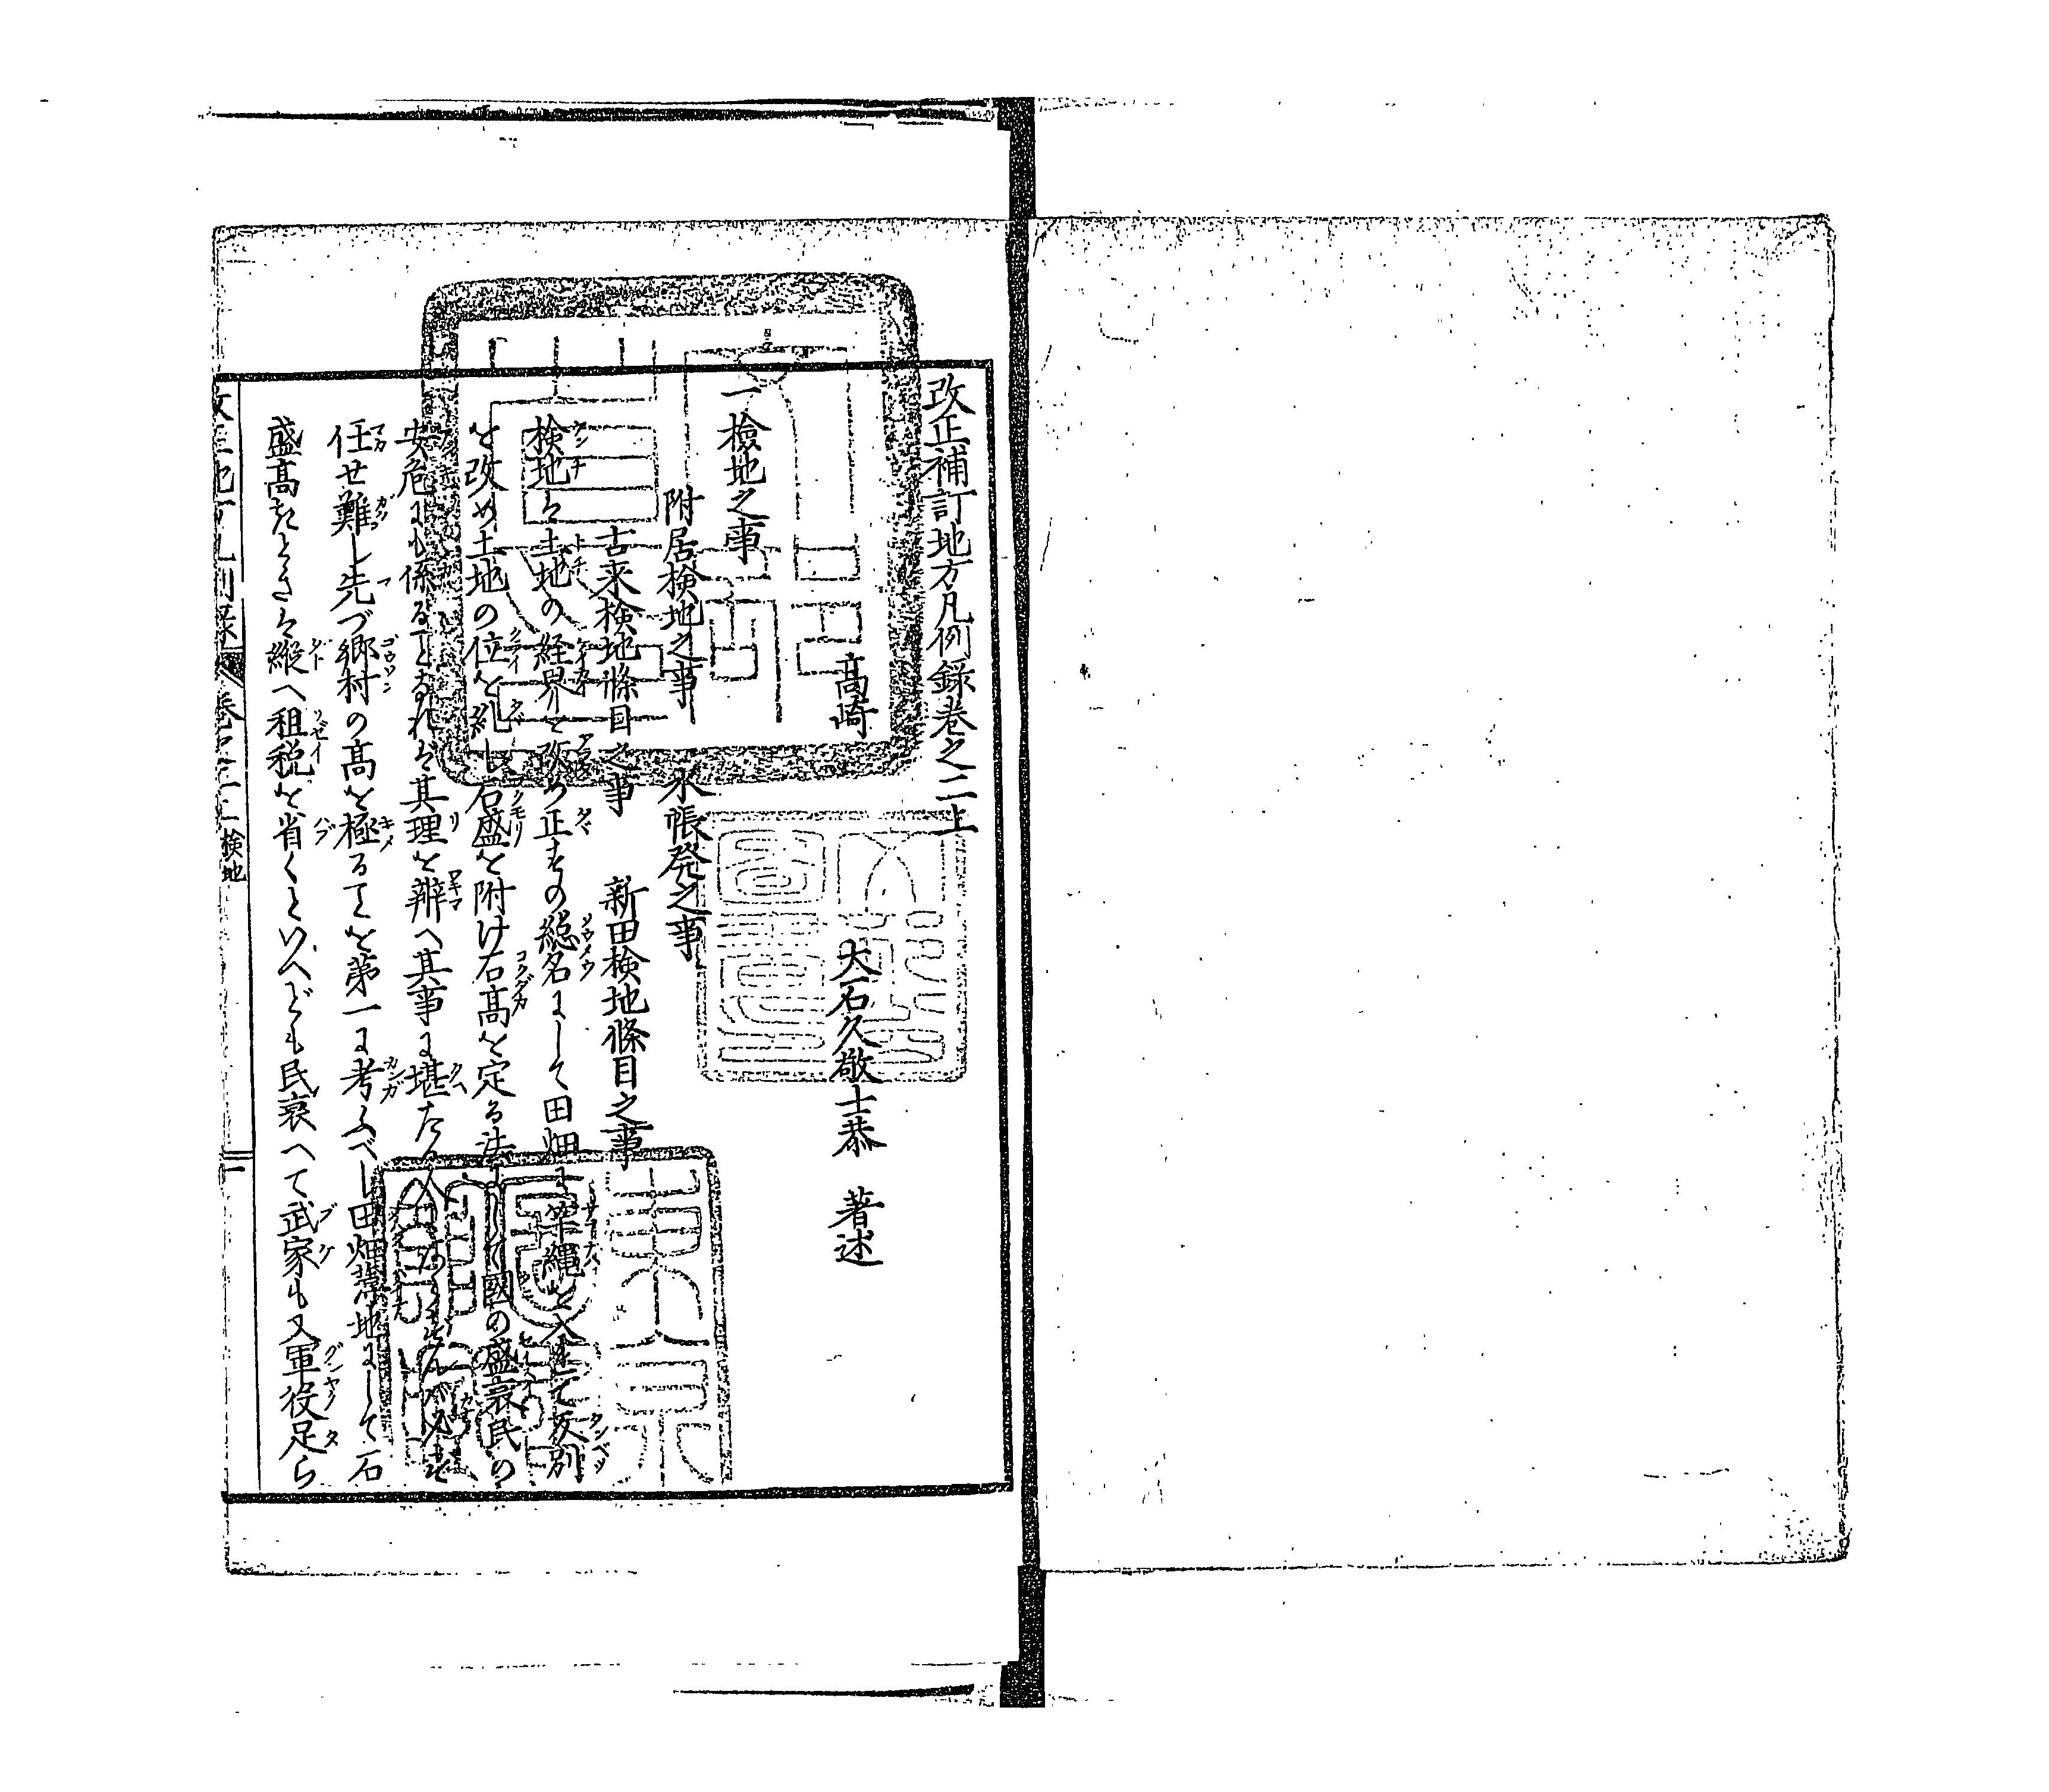 改正補訂地方凡例録巻之二上
高崎　大石久敬士恭　著述
一檢地之事
附居検地之事　水帳発之事
古来検地條目之事　新田検地條目之事
検地ハ土地の経界を改め正すの総名にして田畑に竿縄を入れて反別
を改め土地の位を糺し石盛を附け石高を定る法にして國の盛衰民の
安危にも係ることなれバ其理を辨へ其事に堪たる人に
任せ難し先づ郷村の高を極ることを第一に考ふべし田畑薄地にして石
盛高きときハ縦へ租税を省くといへども民衰へて武家も又軍役足ら
検地
一